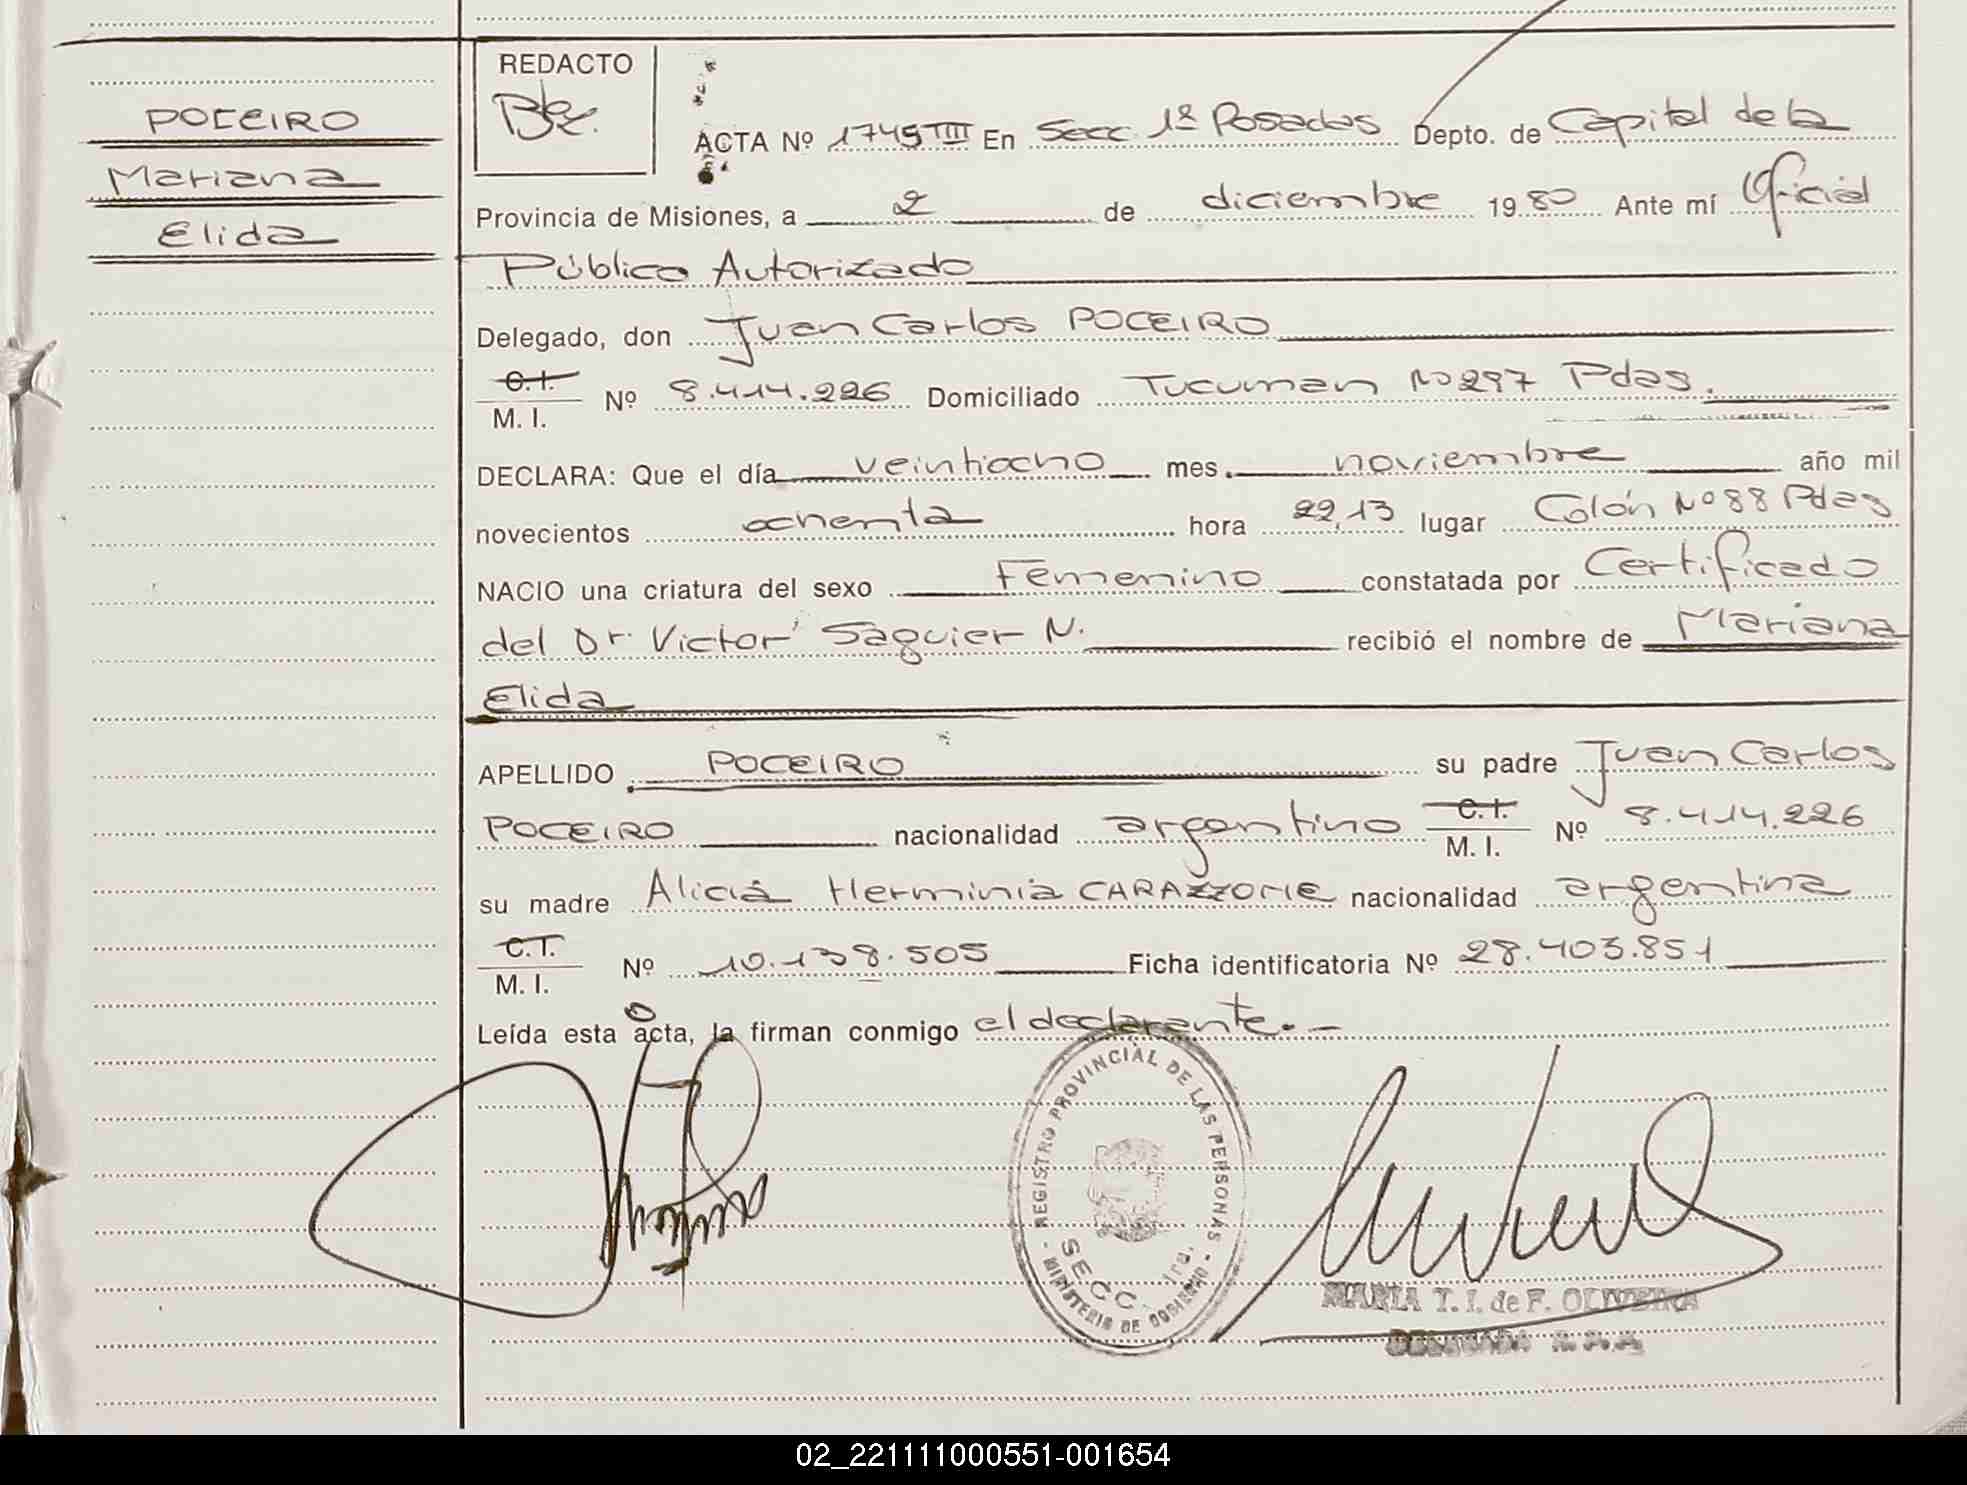 POCEIRO
Mariana
Elida
REDACTO
ACTA Nº 1745 TIII En Secc. 1ª Posadas Depto. de Capital de la
Provincia de Misiones, a 2 de diciembre 1980 Ante mí Oficial
Público Autorizado
Delegado, don Juan Carlos POCEIRO
C.I.
M. I. Nº 8.414.226 Domiciliado Tucuman Nº 297 Pdas.
DECLARA: Que el día veintiocho mes noviembre año mil
novecientos ochenta hora 22,13 lugar Colón Nº 88 Pdas
NACIO una criatura del sexo Femenino constatada por Certificado
del Dr. Victor Saguier N. recibió el nombre de Mariana
Elida
APELLIDO POCEIRO su padre Juan Carlos
POCEIRO nacionalidad argentino C.I. M. I. Nº 8.414.226
su madre Alicia Herminia CARAZZONE nacionalidad argentina
C.I.
M. I. Nº 10.138.505 Ficha identificatoria Nº 28.403.851
Leída esta acta, la firman conmigo el declarante.-
REGISTRO PROVINCIAL DE LAS PERSONAS
SECC. 1ra.
MINISTERIO DE GOBIERNO
MARIA T. I. de F. OLIVEIRA
DELEGADA
02_221111000551-001654